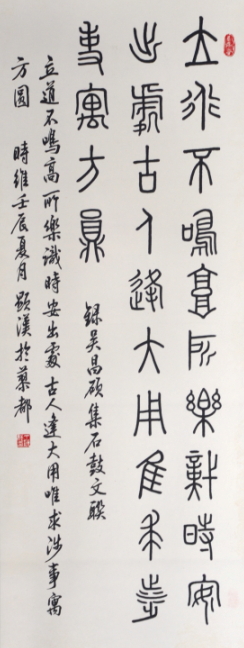 立道不鳴高所樂識時安
出處古人達大用唯求涉
事寓方員
錄吳昌碩集石鼓文聯
立道不鳴高所樂識時安出處古人達大用唯求涉事寓
方圓 時維壬辰夏月 顯漢於蔡都